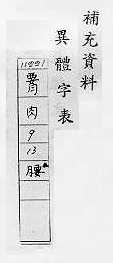 補充資料
異體字表
11221
肉
9
13
腰